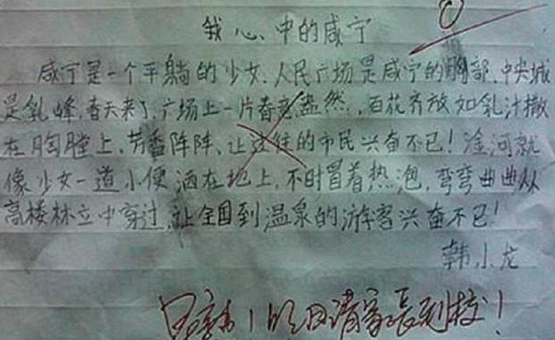 我心中的咸宁
咸宁是一个平躺的少女、人民广场是咸宁的胸部、中央城
是乳峰,春天来了,广场上一片春意盎然,百花齐放如乳汁撒
在胸膛上,芳香阵阵、让过往的市民兴奋不已!淦河就
像少女一道小便洒在地上,不时冒着热泡,弯弯曲曲从
高楼林立中穿过,让全国到温泉的游客兴奋不已!
韩小龙
明日请家长到校!